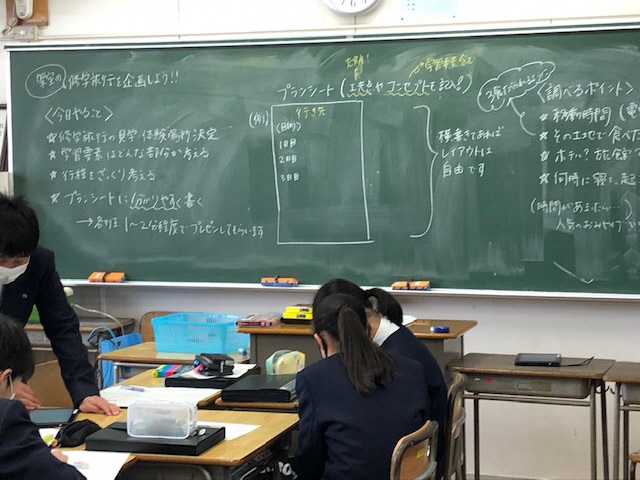 架空の 修学旅行を企画しよう!!
〈今日やること〉
☆ 修学旅行の見学・体験場所決定
☆ 学習要素はどんな部分か考える
☆ 行程をざっくり考える
☆ プランシートに分かりやすく書く
→各班 1〜2分程度でプレゼンしてもらいます
学習要素など
プランシート (工夫点やコンセプトを記入!)
(例)
行き先
(目的)
1日目
2日目
3日目
横書きであれば
レイアウトは
自由です
〈調べるポイント〉
☆ 移動時間 (電
☆ その土地で食べた
☆ ホテル? 旅館?
☆ 何時に寝て、起
(時間があまったら…
人気のおみやげ